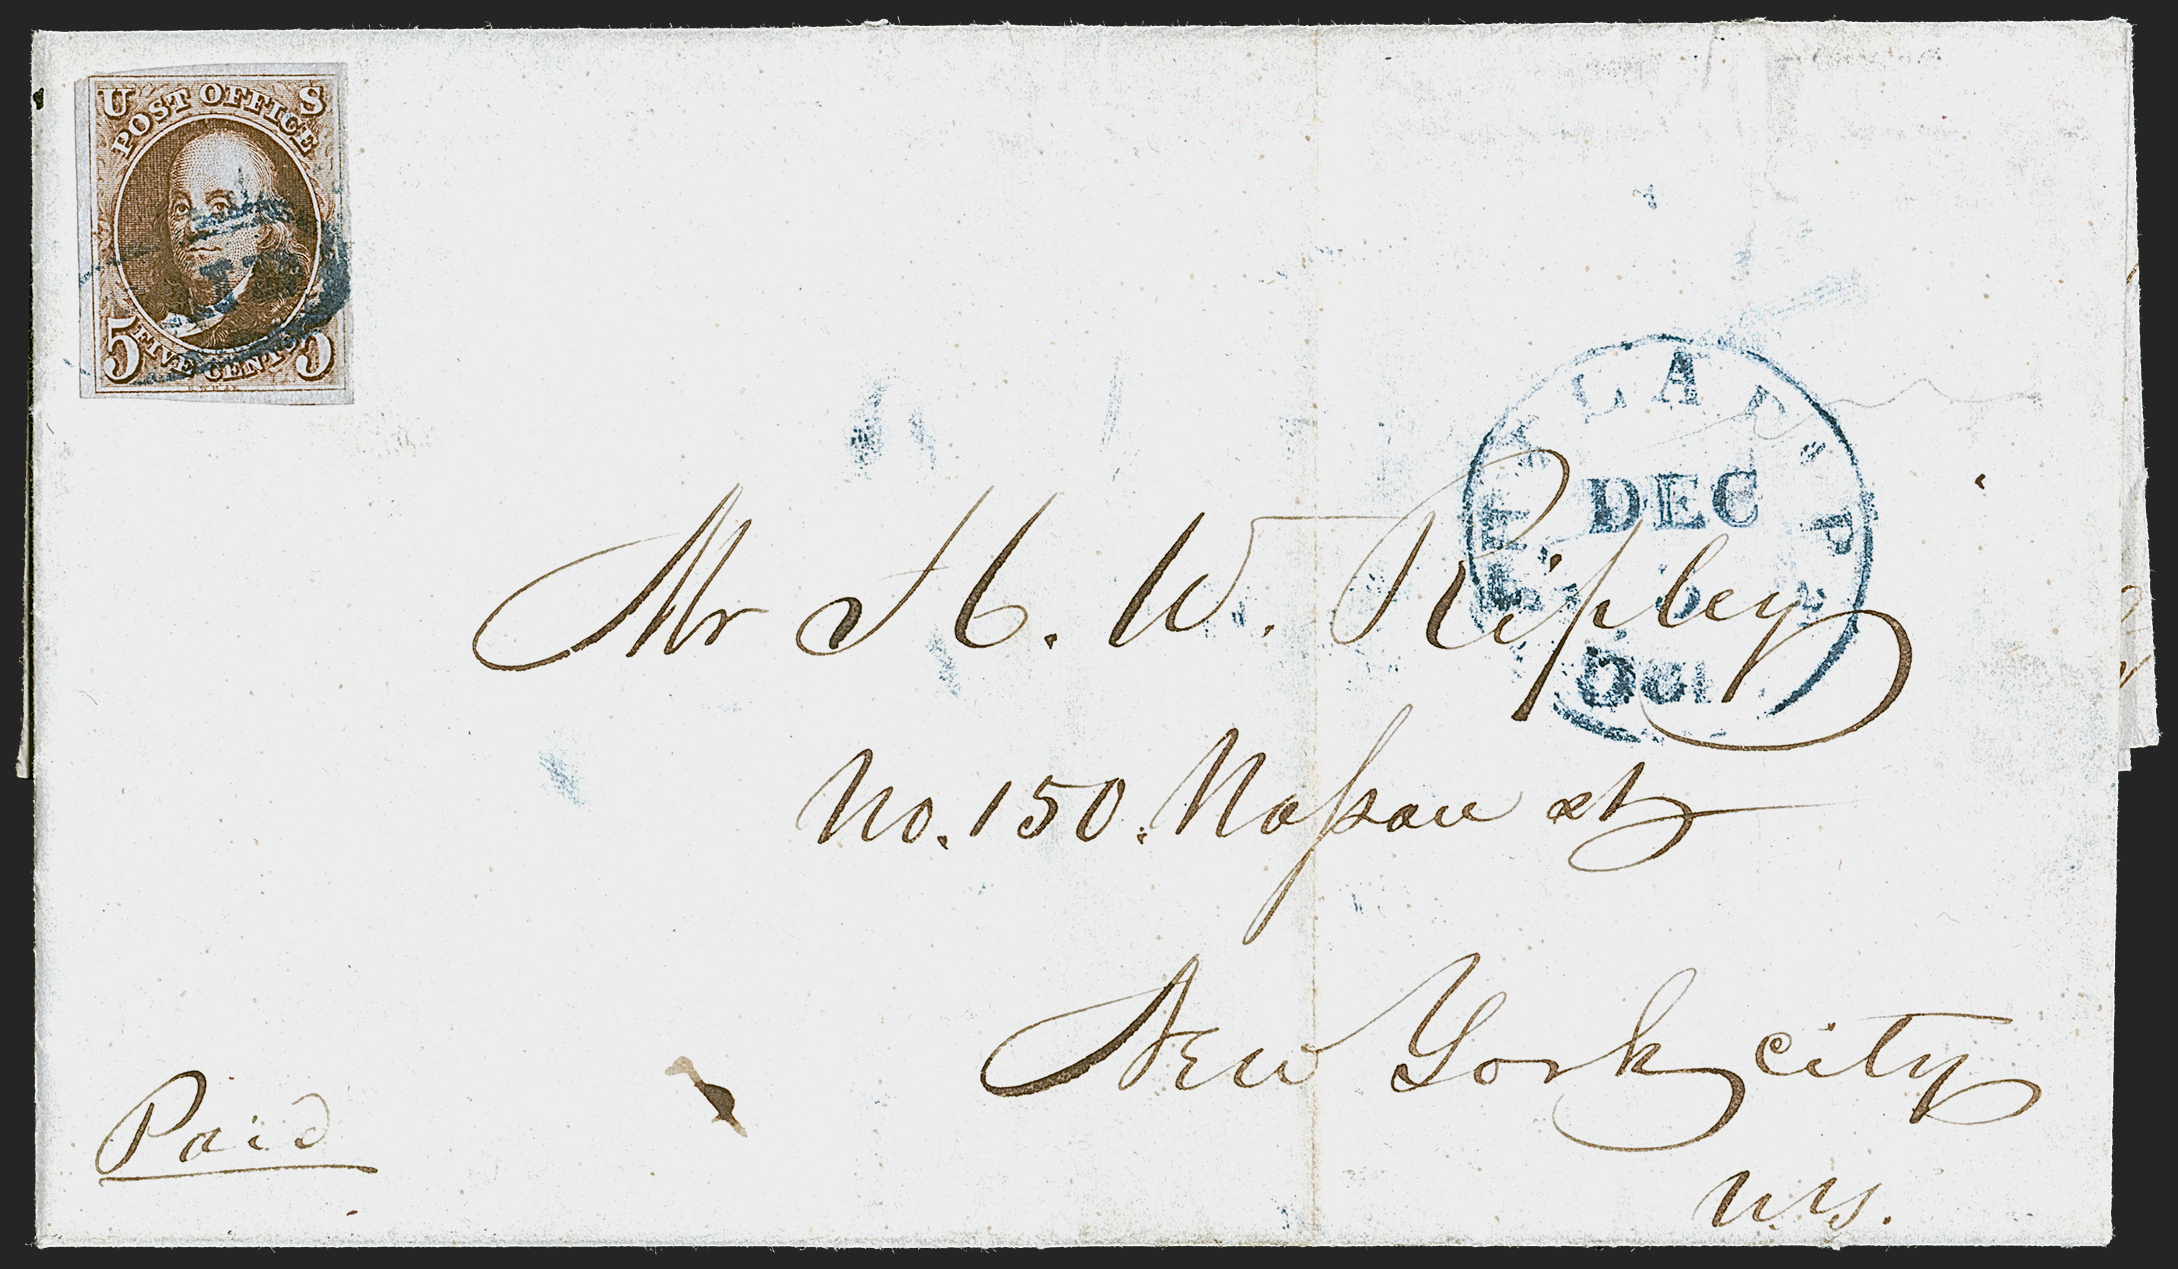 U S
POST OFFICE
5 FIVE CENTS 5
DEC
Mr H. W. Ripley
No. 150. Nassau st
New York city
N.Y.
Paid